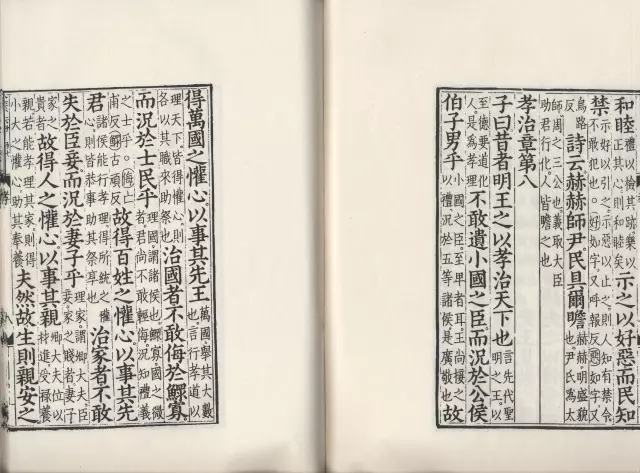 和睦禮以檢其跡樂以正其心則和睦矣示之以好惡而民知
禁示好以引之示惡以止之則人知有禁令不敢犯也。好如字又呼報反惡如字又
烏路反詩云赫赫師尹民具爾瞻赫赫明盛貌也尹氏為太
師周之三公也義取大臣助君行化人皆瞻之也
孝治章第八
子曰昔者明王之以孝治天下也言先代聖明之王以
至德要道化人是為孝理不敢遺小國之臣而況於公侯
伯子男乎小國之臣至卑者耳王尚接之以禮況於五等諸侯是廣敬也故
得萬國之懽心以事其先王萬國舉其大數也言行孝道以
理天下皆得懽心則各以其職來助祭也治國者不敢侮於鰥寡
而況於士民乎理國謂諸侯也鰥寡國之微者君尚不敢輕侮況知禮義
之士乎。侮亡甫反鰥古頑反故得百姓之懽心以事其先
君諸侯能行孝理得所統之懽心則皆恭事助其祭享也治家者不敢
失於臣妾而況於妻子乎理家謂卿大夫臣妾家之賤者妻子
家之貴者故得人之懽心以事其親卿大夫位以材進受祿養
親若能孝理其家則得小大之懽心助其奉養夫然故生則親安之